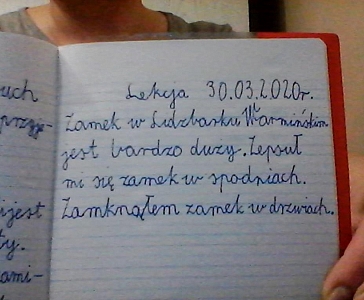 uch
przyje-
ijest
by.
ami-
Lekcja 30.03.2020r.
Zamek w Lidzbarku Warmińskim
jest bardzo duży. Zepsuł
mi się zamek w spodniach.
Zamknąłem zamek w drzwiach.